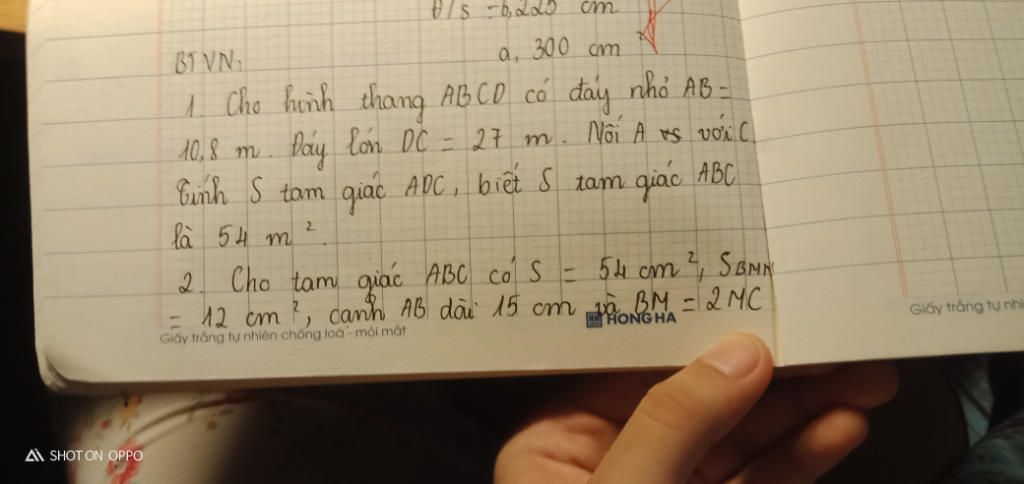 = 6,225 cm
a, 300 cm²
BTVN:
1. Cho hình thang ABCD có đáy nhỏ AB =
10,8 m. Đáy lớn DC = 27 m. Nối A với C
Tính S tam giác ADC, biết S tam giác ABC
là 54 m².
2. Cho tam giác ABC có S = 54 cm², SBMN
= 12 cm², cạnh AB dài 15 cm và BM = 2MC
HONG HA
Giấy trắng tự nhiên chống loá - mỏi mắt
Giấy trắng tự nhi
SHOT ON OPPO